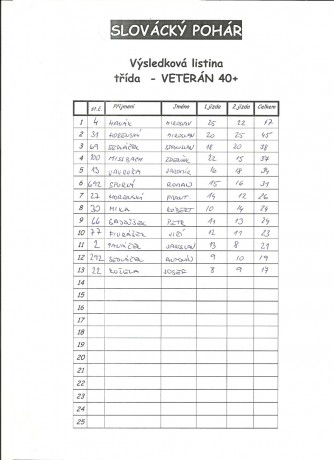 SLOVÁCKÝ POHÁR
Výsledková listina
třída - VETERÁN 40+
st.č. Příjmení Jméno 1.jízda 2.jízda Celkem
1 4 MIROSLAV 25 22 17
2 31 MIROSLAV 20 25 45
3 69 SEDLÁČEK 18 20 38
4 100 MISSBACH ZDENĚK 22 15 37
5 13 16 18 34
6 692 ROMAN 15 16 31
7 27 14 12 26
8 30 MIKA ROBERT 10 14 24
9 66 PETR 11 13 24
10 77 JIŘÍ 12 11 23
11 2 JAROSLAV 13 8 21
12 292 SEDLÁČEK ANTONÍN 9 10 19
13 22 JOSEF 8 9 17
14
15
16
17
18
19
20
21
22
23
24
25